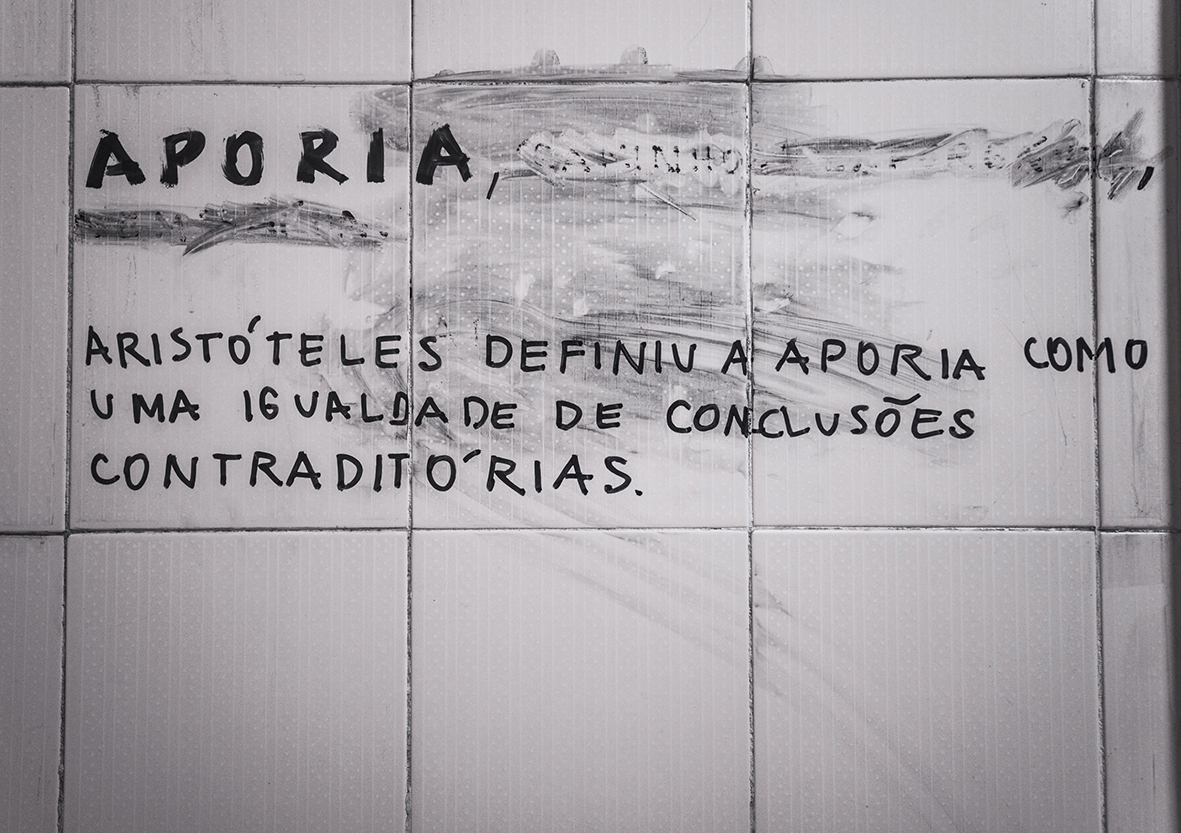 APORIA,
ARISTÓTELES DEFINIU A APORIA COMO
UMA IGUALDADE DE CONCLUSÕES
CONTRADITÓRIAS.